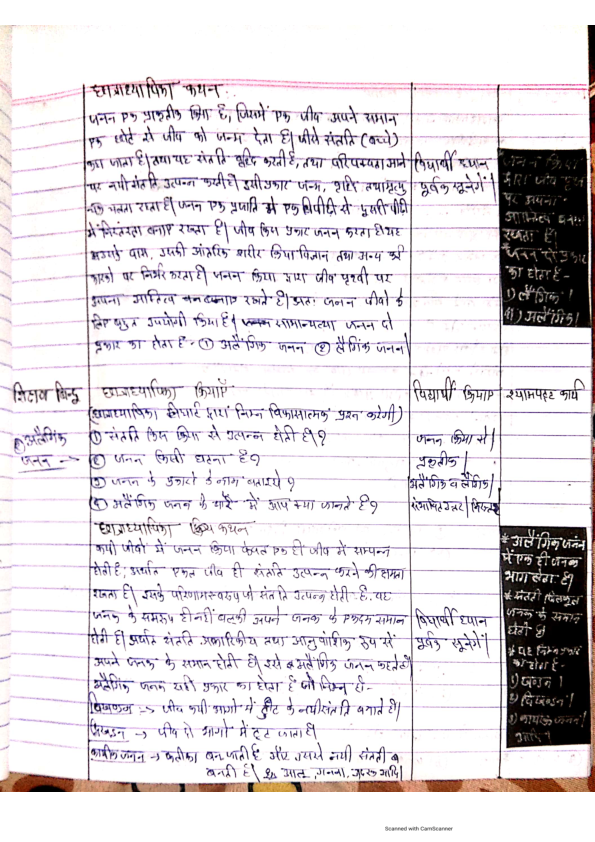 छात्राध्यापिका कथन :-
जनन एक प्राकृतिक क्रिया है, जिसमें एक जीव अपने समान
एक छोटे से जीव को जन्म देता है। जीसे संतति (बच्चे)
कहा जाता है। तथा यह संतति वृद्धि करती है, तथा परिपक्वता आने
पर नयी संतति उत्पन्न करती है। इसी प्रकार जन्म, वृद्धि तथा मृत्यु
चलता रहता है। जनन एक प्रजाति में एक पीढ़ी से दूसरी पीढ़ी
में निरंतरता बनाए रखता है। जीव किस प्रकार जनन करता है यह
उसके वास, उसकी आंतरिक शरीर क्रिया विज्ञान तथा अन्य कई
कारको पर निर्भर करता है। जनन क्रिया द्वारा जीव पृथ्वी पर
अपना अस्तित्व बनाए रखते है। अतः जनन जीवो के
लिए बहुत उपयोगी क्रिया है। सामान्यतया जनन दो
प्रकार का होता है - ① अलैंगिक जनन ② लैंगिक जनन।
विद्यार्थी ध्यान
पूर्वक सुनेगें।
जनन क्रिया
द्वारा जीव पृथ्वी
पर अपना
अस्तित्व बनाए
रखता है।
जनन दो प्रकार
का होता है -
1) लैंगिक।
2) अलैंगिक।
शिक्षण बिन्दु
छात्राध्यापिका क्रियाएँ
विद्यार्थी क्रियाएँ
श्यामपट्ट कार्य
(छात्राध्यापिका द्वारा निम्न विकासात्मक प्रश्न करेगी)
अलैंगिक
जनन →
① संतति किस क्रिया से उत्पन्न होती है?
जनन क्रिया से।
② जनन किसी घटना है?
प्रकृतिक।
③ जनन के प्रकारो के नाम बताइये?
अलैंगिक व लैंगिक।
④ अलैंगिक जनन के बारे में आप क्या जानते है?
छात्राध्यापिका कथन
कयी जीवो में जनन क्रिया केवल एक ही जीव में सम्पन्न
होती है; अर्थात एकल जीव ही संतति उत्पन्न करने की क्षमता
रखता है। इसके परिणामस्वरुप जो संतति उत्पन्न होती है. वह
जनक के समरुप ही नहीं वल्की अपने जनक के एकदम समान
होती है। अर्थात संतति आकारिकीय तथा आनुवांशिक रुप से
अपने जनक के समान होती है। इसे अलैंगिक जनन कहते है।
अलैंगिक जनक कई प्रकार का होता है जो निम्न है-
→ जीव कयी भागो में टूट के नयी संतति बनाते है।
→ जीव दो भागो में टूट जाता है।
कायिक जनन → कलीका बन जाती है और उससे नयी संतती
बनती है। आलू, गन्ना, अदरक आदि।
विद्यार्थी ध्यान
पूर्वक सुनेगें।
* अलैंगिक जनन
में एक ही जनक
भाग लेता है।
* संतती बिलकुल
जनक के समान
होती है।
* यह निम्न प्रकार
का होता है -
1) खण्डन।
2) विखण्डन।
3) कायिक जनन।
आदि।
Scanned with CamScanner